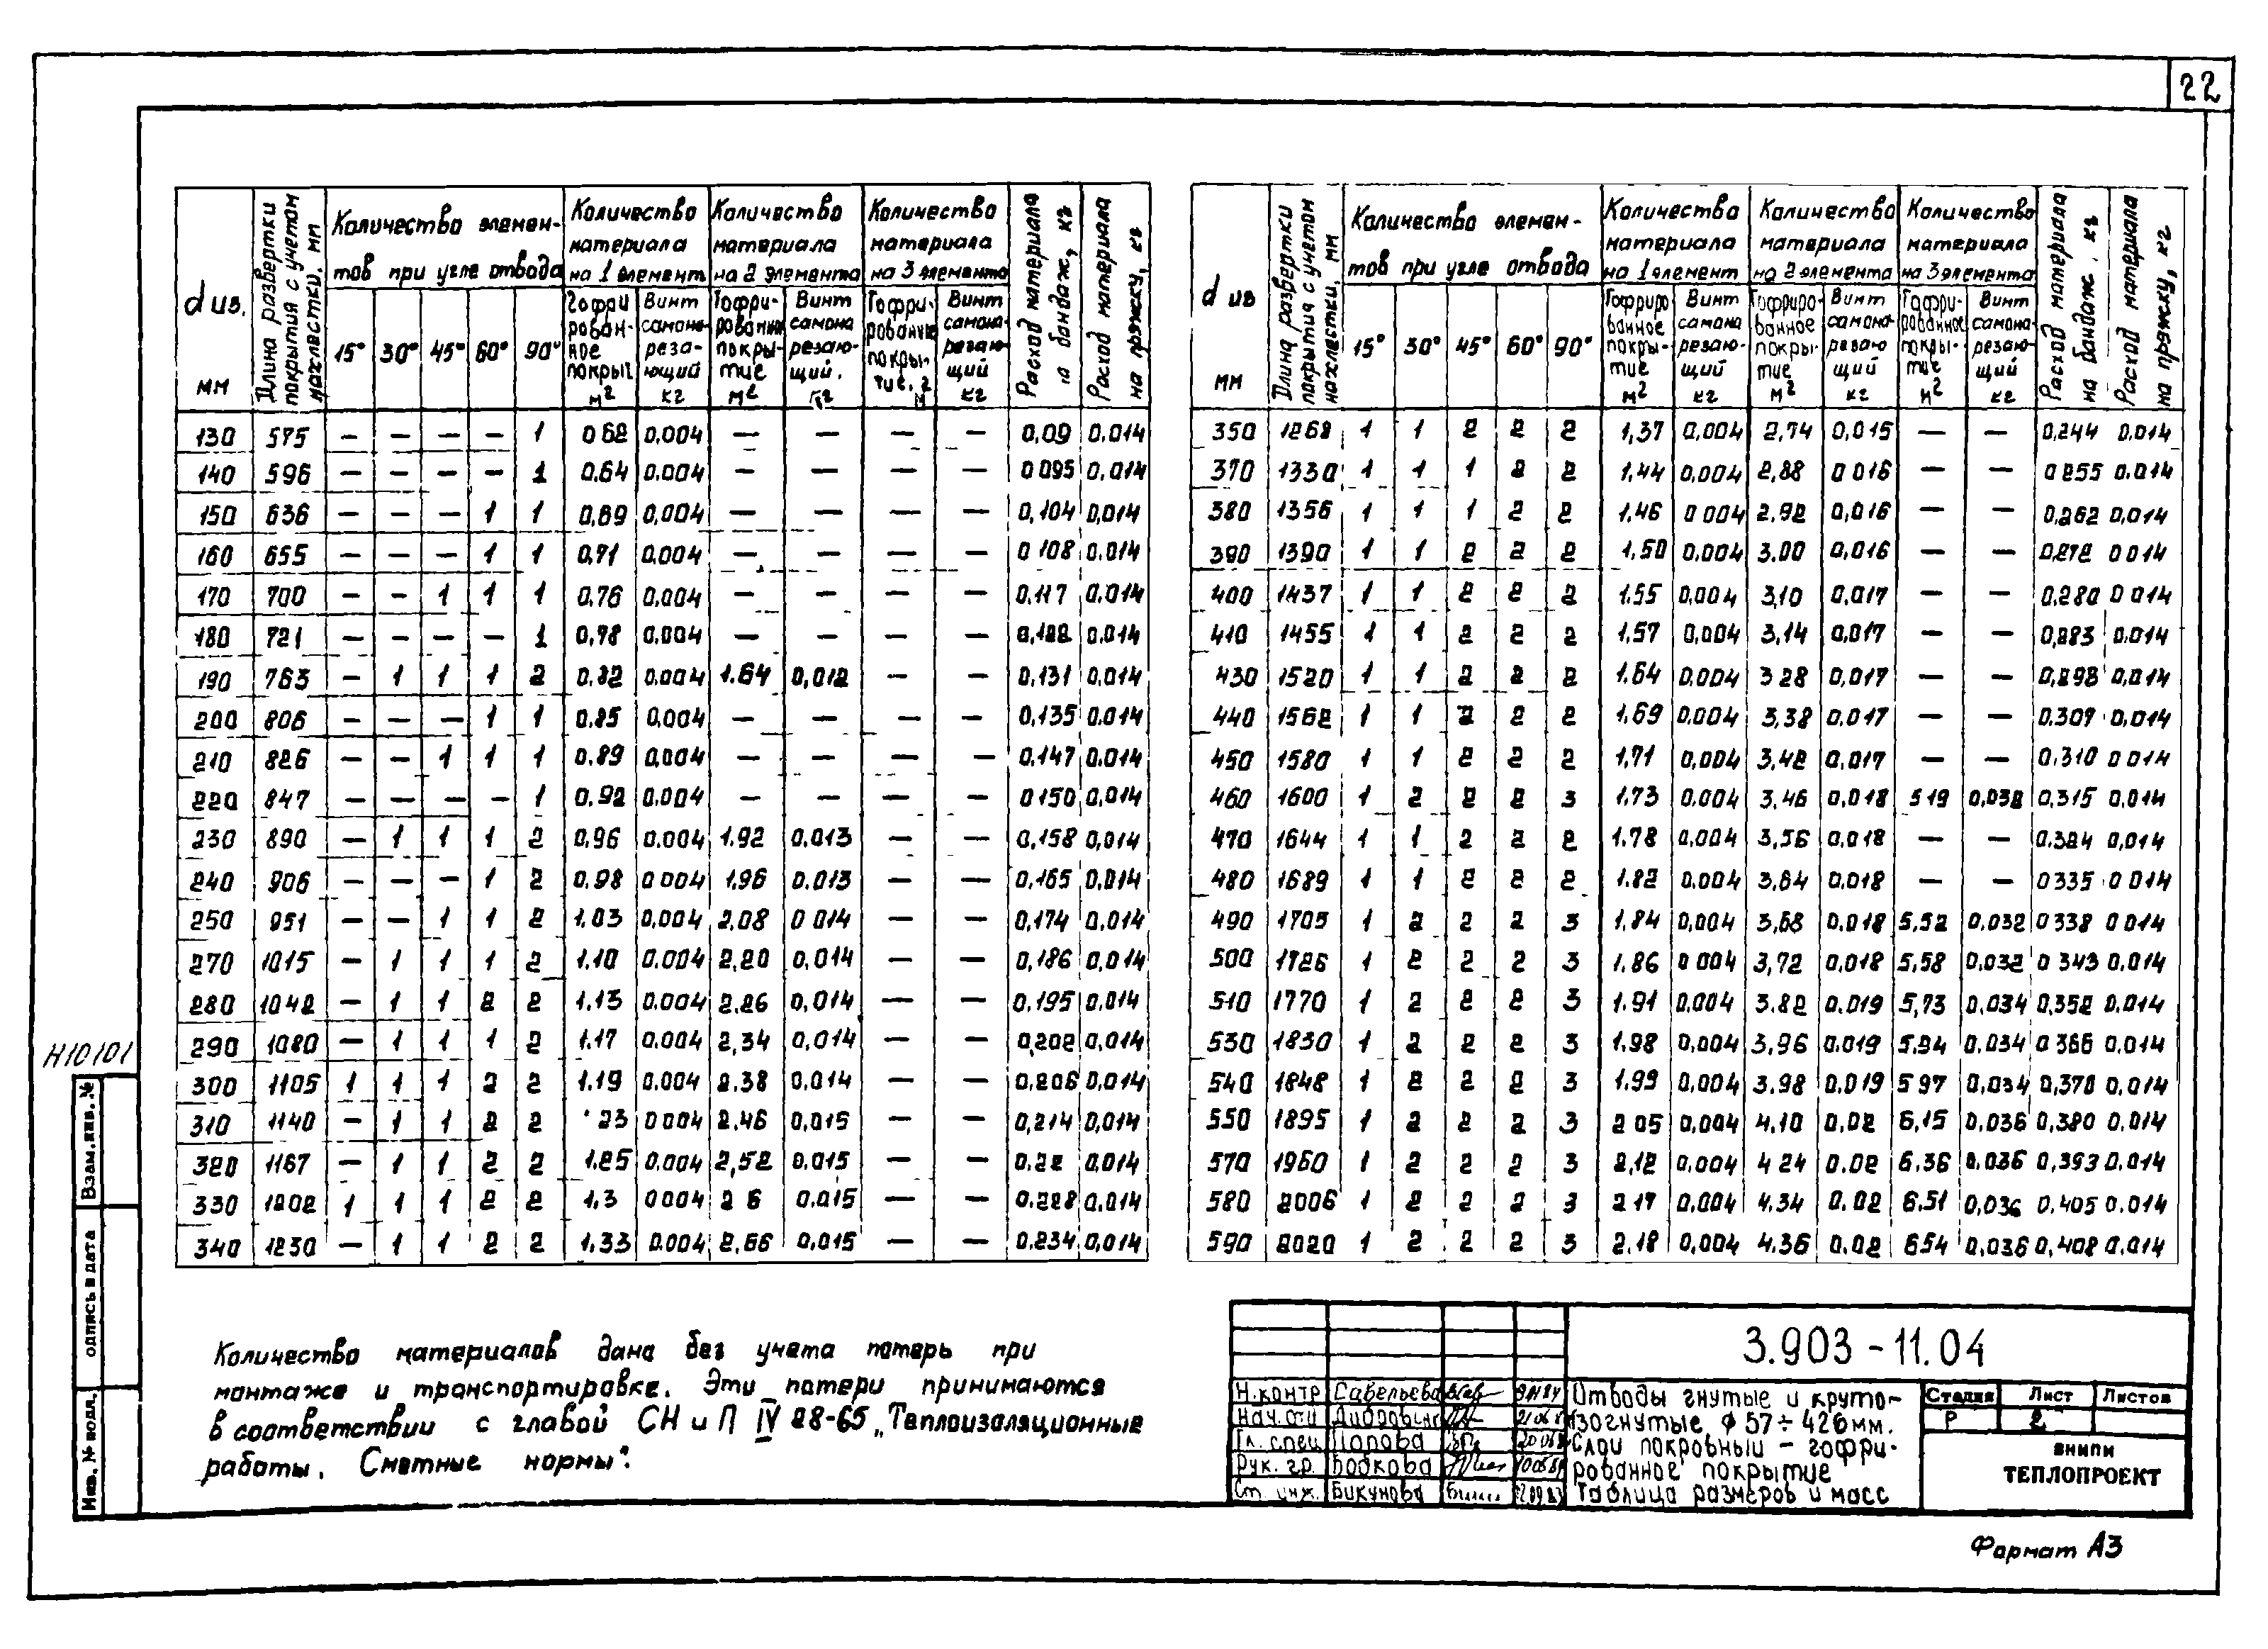 22
d из. мм | Длина развертки покрытия с учетом нахлестки, мм | Количество элементов при угле отвода | Количество материала на 1 элемент | Количество материала на 2 элемента | Количество материала на 3 элемента | Расход материала на бандаж, кг | Расход материала на пряжку, кг
15° 30° 45° 60° 90° | Гофрированное покрыт. м² | Винт самонарезающий кг | Гофрированное покрытие м² | Винт самонарезающий. кг | Гофрированное покрытие, м² | Винт самонарезающий кг
130 575 — — — — 1 0 62 0,004 — — — — 0,09 0,014
140 596 — — — — 1 0,64 0,004 — — — — 0 095 0,014
150 636 — — — 1 1 0,69 0,004 — — — — 0,104 0,014
160 655 — — — 1 1 0,71 0,004 — — — — 0 108 0,014
170 700 — — 1 1 1 0,76 0,004 — — — — 0,117 0,014
180 721 — — — — 1 0,78 0,004 — — — — 0,122 0,014
190 763 — 1 1 1 2 0,82 0,004 1.64 0,012 — — 0,131 0,014
200 806 — — — 1 1 0,85 0,004 — — — — 0,135 0,014
210 826 — — 1 1 1 0,89 0,004 — — — — 0,147 0,014
220 847 — — — — 1 0,92 0,004 — — — — 0 150 0,014
230 890 — 1 1 1 2 0,96 0,004 1.92 0,013 — — 0,158 0,014
240 906 — — — 1 2 0,98 0 004 1,96 0,013 — — 0,165 0,014
250 951 — — 1 1 2 1,03 0,004 2,08 0 014 — — 0,174 0,014
270 1015 — 1 1 1 2 1.10 0,004 2,20 0,014 — — 0,186 0,014
280 1042 — 1 1 2 2 1,13 0,004 2,26 0,014 — — 0,195 0,014
290 1080 — 1 1 1 2 1,17 0,004 2,34 0,014 — — 0,202 0,014
300 1105 1 1 1 2 2 1.19 0,004 2,38 0,014 — — 0,206 0,014
310 1140 — 1 1 2 2 23 0 004 2,46 0,015 — — 0,214 0,014
320 1167 — 1 1 2 2 1,25 0,004 2,52 0,015 — — 0,22 0,014
330 1202 1 1 1 2 2 1,3 0004 2 6 0,015 — — 0,228 0,014
340 1230 — 1 1 2 2 1,33 0,004 2,66 0,015 — — 0,234 0,014
d из мм | Длина развертки покрытия с учетом нахлестки, мм | Количество элементов при угле отвода | Количество материала на 1 элемент | Количество материала на 2 элемента | Количество материала на 3 элемента | Расход материала на бандаж, кг | Расход материала на пряжку, кг
15° 30° 45° 60° 90° | Гофрированное покрытие м² | Винт самонарезающий кг | Гофрированное покрытие м² | Винт самонарезающий кг | Гофрированное покрытие м² | Винт самонарезающий кг
350 1268 1 1 2 2 2 1,37 0,004 2,74 0,015 — — 0,244 0,014
370 1330 1 1 1 2 2 1,44 0,004 2,88 0 016 — — 0 255 0,014
380 1356 1 1 1 2 2 1,46 0 004 2,92 0,016 — — 0,262 0,014
390 1390 1 1 2 2 2 1,50 0,004 3,00 0,016 — — 0,272 0 014
400 1437 1 1 2 2 2 1.55 0,004 3,10 0,017 — — 0,280 0 014
410 1455 1 1 2 2 2 1,57 0,004 3,14 0,017 — — 0,283 0,014
430 1520 1 1 2 2 2 1,64 0,004 3 28 0,017 — — 0,298 0,014
440 1562 1 1 2 2 2 1,69 0,004 3,38 0,017 — — 0,307 0,014
450 1580 1 1 2 2 2 1,71 0,004 3,42 0,017 — — 0,310 0 014
460 1600 1 2 2 2 3 1,73 0,004 3,46 0,018 5 19 0,032 0,315 0,014
470 1644 1 1 2 2 2 1,78 0,004 3,56 0,018 — — 0,324 0,014
480 1689 1 1 2 2 2 1.82 0,004 3,64 0,018 — — 0335 0 014
490 1705 1 2 2 2 3 1,84 0,004 3,68 0,018 5,52 0,032 0 338 0 014
500 1726 1 2 2 2 3 1,86 0 004 3,72 0,018 5,58 0,032 0 343 0,014
510 1770 1 2 2 2 3 1,91 0,004 3.82 0,019 5,73 0,034 0,352 0,014
530 1830 1 2 2 2 3 1.98 0,004 3,96 0,019 5.94 0,034 0 366 0,014
540 1848 1 2 2 2 3 1,99 0,004 3.98 0,019 5 97 0,034 0,370 0,014
550 1895 1 2 2 2 3 2 05 0,004 4,10 0,02 6,15 0,036 0,380 0,014
570 1960 1 2 2 2 3 2,12 0,004 4 24 0.02 6.36 0,036 0,393 0,014
580 2006 1 2 2 2 3 2 17 0,004 4,34 0,02 6,51 0,036 0,405 0,014
590 2020 1 2 2 2 3 2,18 0,004 4,36 0,02 654 0,036 0,408 0,014
Н10101
Взам.инв.№
одпись в дата
Инв. № подл.
Количество материалов дана без учета потерь при
монтаже и транспортировке. Эти потери принимаются
в соответствии с главой СН и П IV 28-65 „Теплоизоляционные
работы. Сметные нормы".
3.903-11.04
Н.контр Савельева
Нач.отд
Гл. спец Попова
Рук. гр. Бобкова
Ст инж. Бикунова
Отводы гнутые и круто-
изогнутые ϕ 57÷426мм.
Слой покровный – гофри-
рованное покрытие
Таблица размеров и масс
Стадия Лист Листов
Р 2
ВНИПИ
ТЕПЛОПРОЕКТ
Формат А3